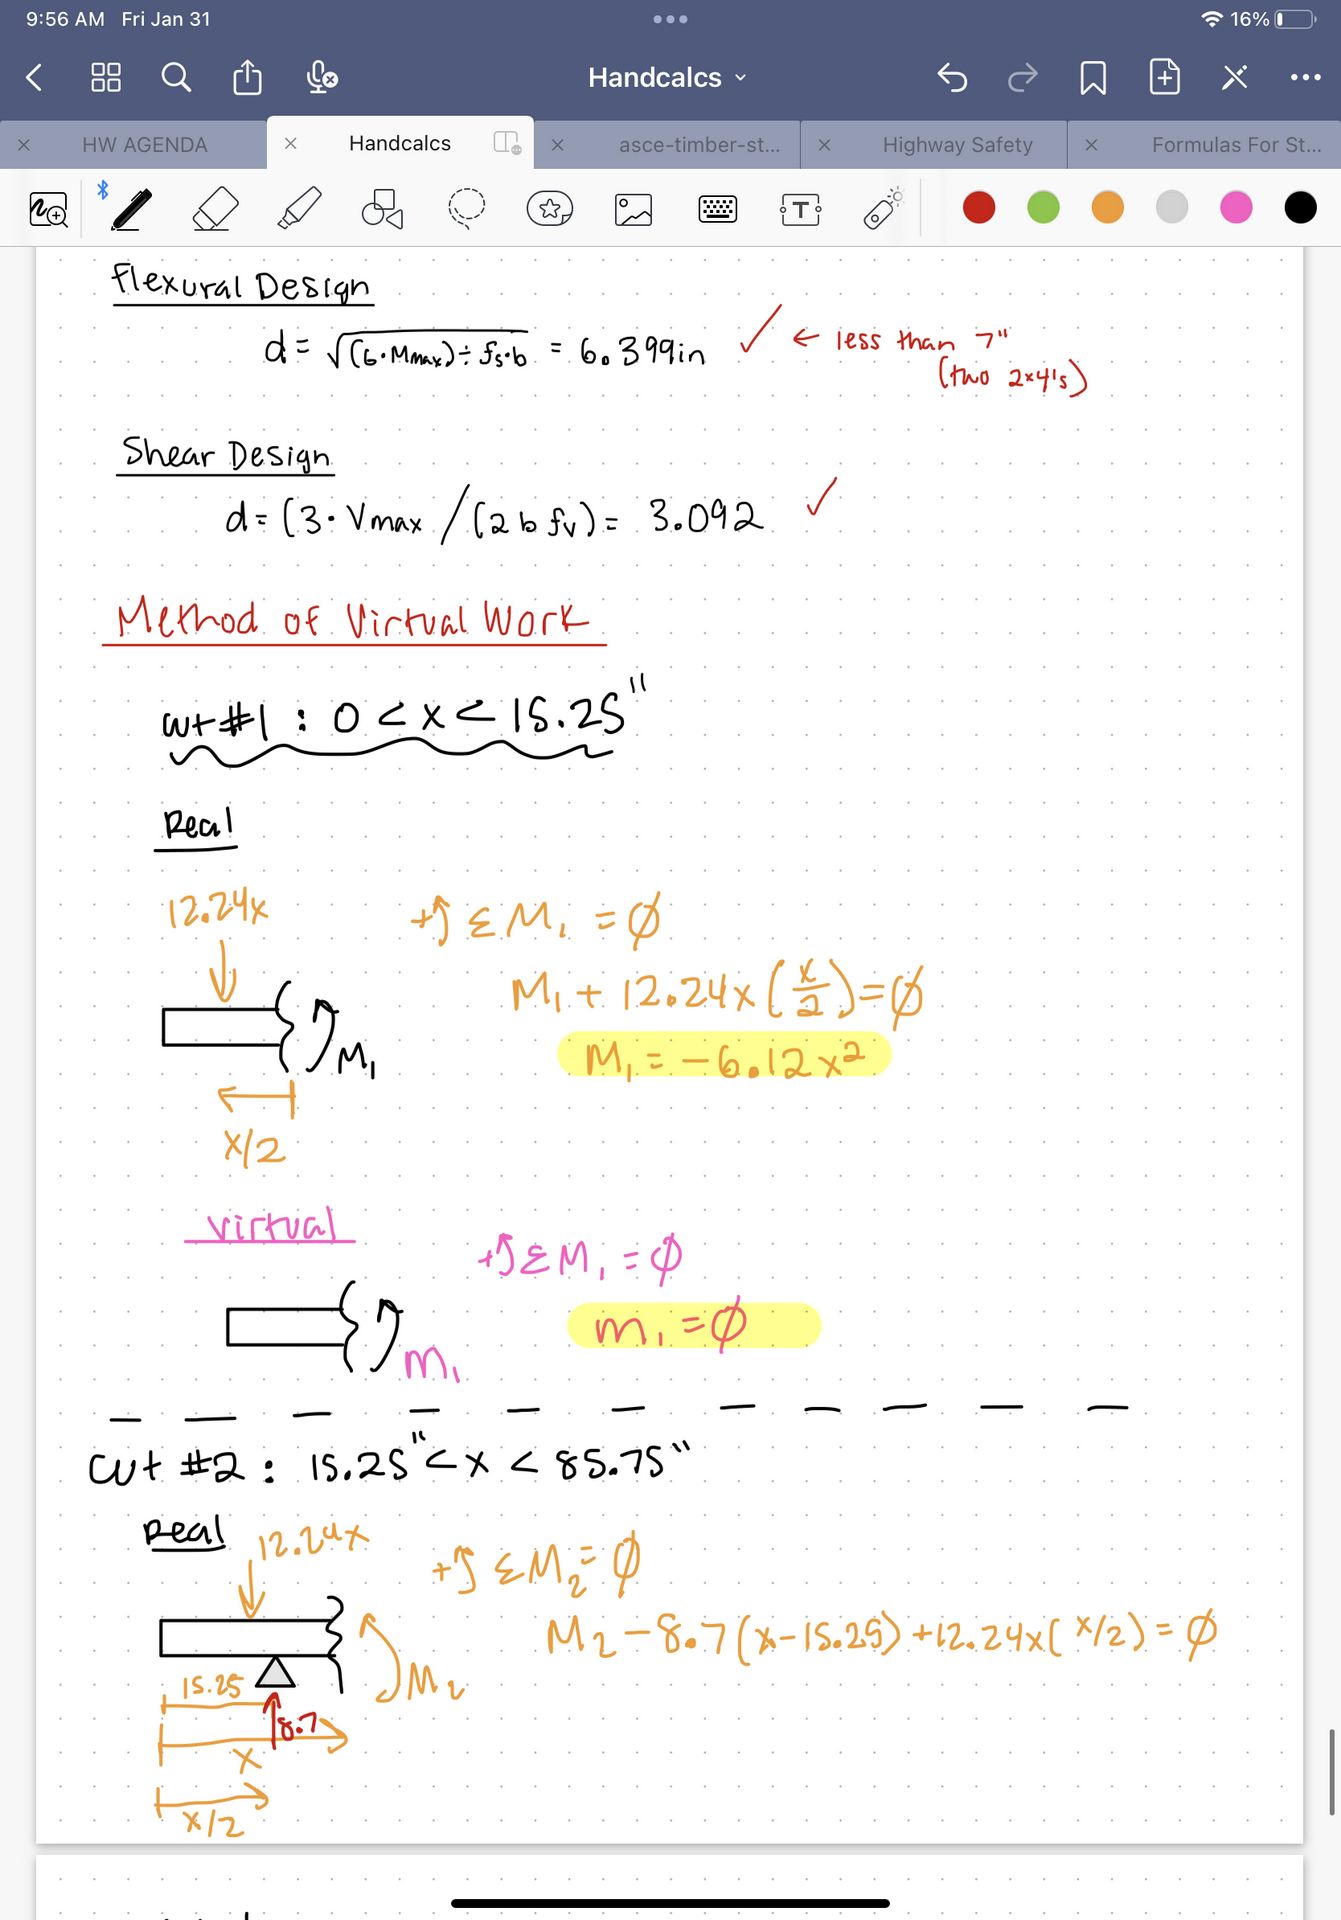 9:56 AM Fri Jan 31
16%
Handcalcs
HW AGENDA
Handcalcs
asce-timber-st...
Highway Safety
Formulas For St...
T
Flexural Design
d = √(6·Mmax) ÷ fs·b = 6.399in ✓ ← less than 7"
(two 2×4's)
Shear Design
d = (3· Vmax / (2 b fv) = 3.092 ✓
Method of Virtual Work
cut #1 : 0 < x < 15.25"
Real
12.24x
+↑ ΣM₁ = ∅
M₁ + 12.24x (x/2) = ∅
M₁ = -6.12x²
M₁
x/2
virtual
+↑ ΣM₁ = ∅
m₁ = ∅
m₁
cut #2 : 15.25" < x < 85.75"
Real
12.24x
+↑ ΣM₂ = ∅
M₂ - 8.7(x-15.25) + 12.24x( x/2) = ∅
M₂
15.25
8.7
x
x/2